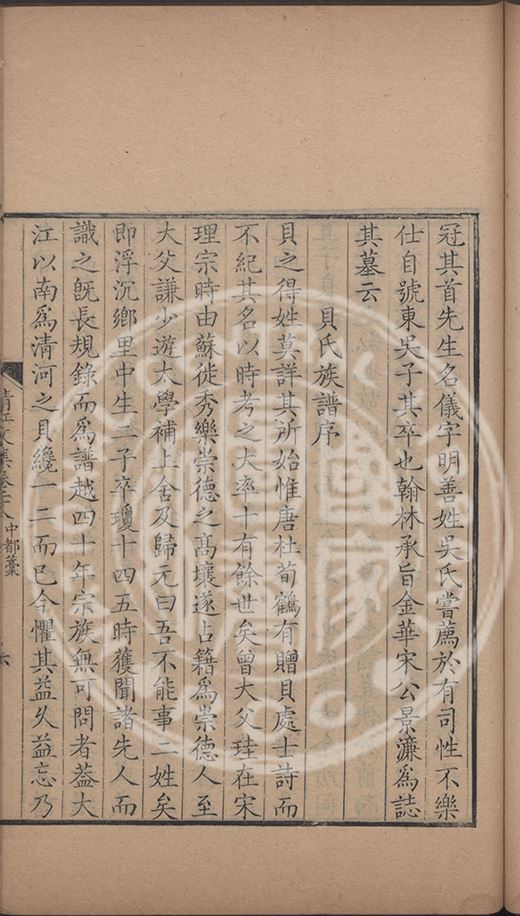 冠其首先生名儀字明善姓吳氏嘗薦於有司性不樂
仕自號東吳子其卒也翰林承旨金華宋公景濂爲誌
其墓云
貝氏族譜序
貝之得姓莫詳其所始惟唐杜荀鶴有贈貝處士詩而
不紀其名以時考之大率十有餘世矣曾大父珪在宋
理宗時由蘇徙秀樂崇德之髙壤遂占籍爲崇德人至
大父謙少遊太學補上舍及歸元曰吾不能事二姓矣
即浮沉鄉里中生二子卒瓊十四五時獲聞諸先人而
識之旣長規錄而爲譜越四十年宗族無可問者葢大
江以南爲清河之貝纔一二而已今懼其益久益忘乃
清江文集卷二十八中都藁
六